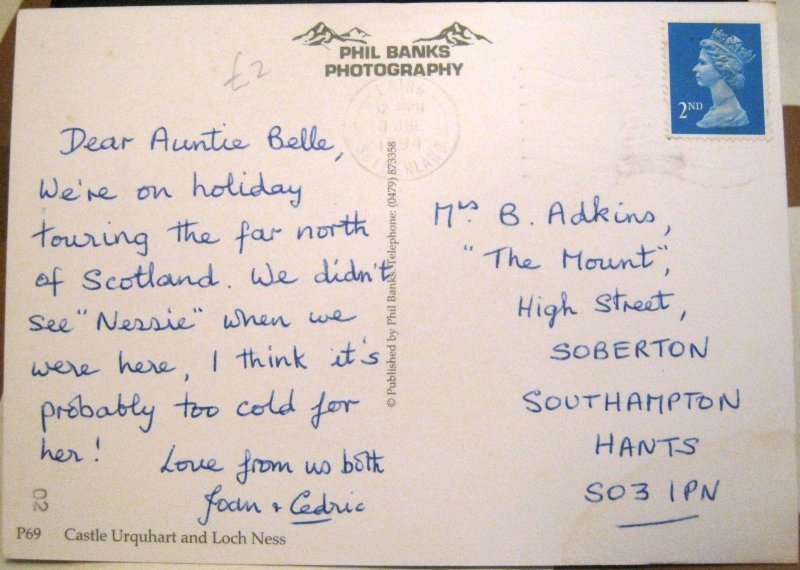 PHIL BANKS
PHOTOGRAPHY
£2
2ND
LAIRG
SUTHERLAND
Dear Auntie Belle,
We're on holiday
touring the far north
of Scotland. We didn't
see "Nessie" when we
were here, I think it's
probably too cold for
her!
Love from us both
Joan + Cedric
© Published by Phil Banks. Telephone: (0479) 873358
Mrs B. Adkins,
"The Mount",
High Street,
SOBERTON
SOUTHAMPTON
HANTS
SO3 1PN
02
P69 Castle Urquhart and Loch Ness